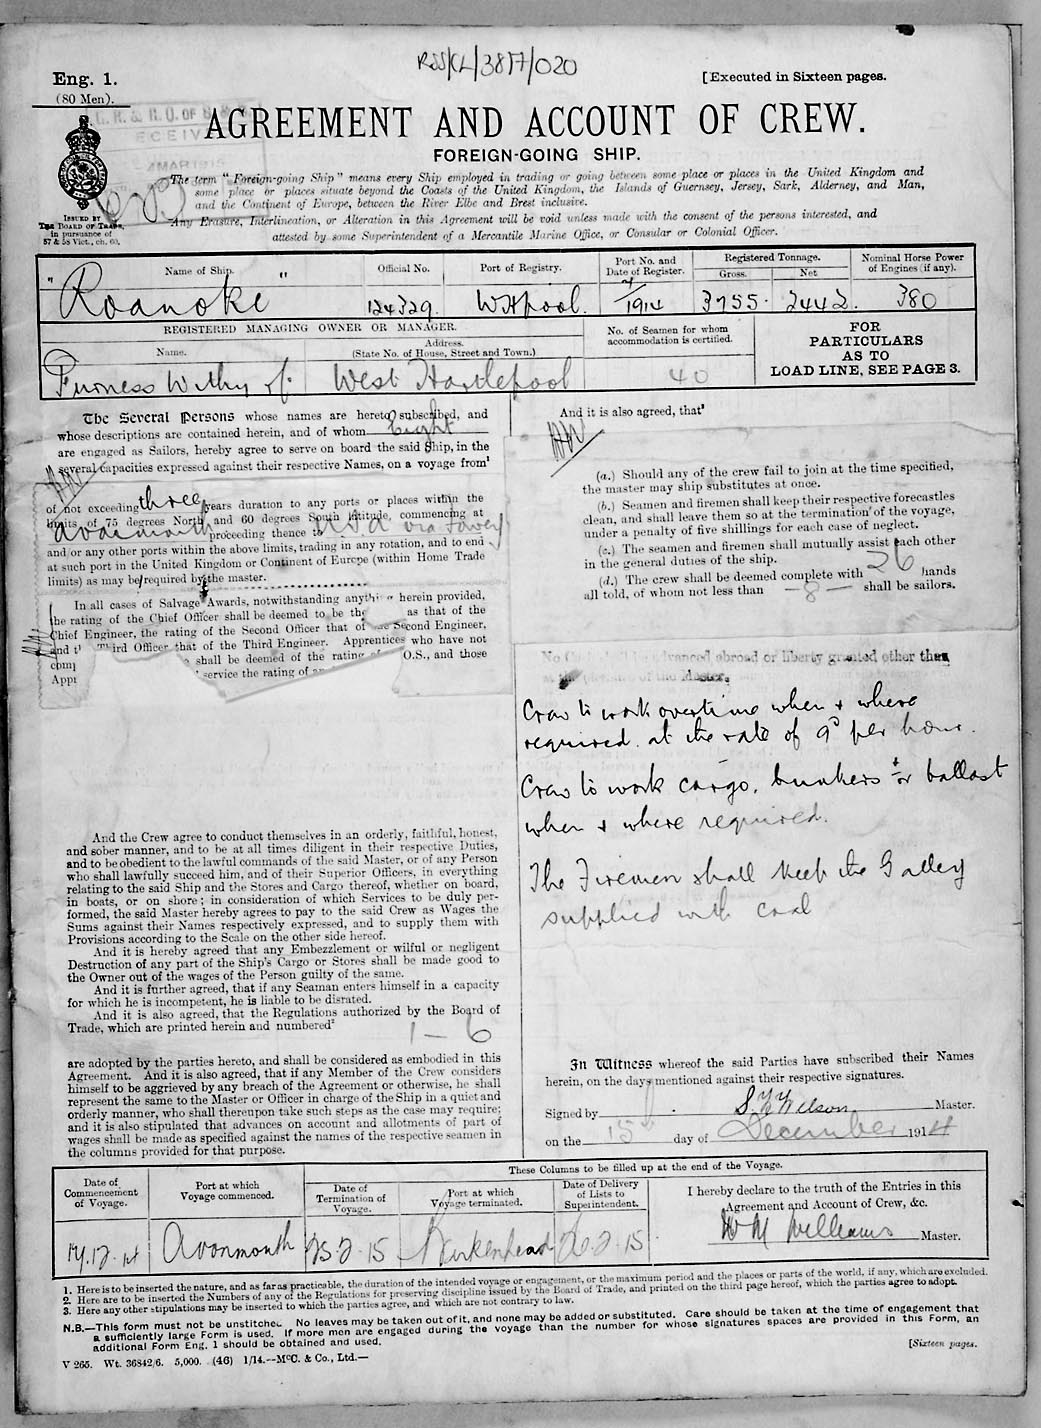 RSS/CL/3817/020
Eng. 1.
(80 Men).
[Executed in Sixteen pages.
AGREEMENT AND ACCOUNT OF CREW.
FOREIGN-GOING SHIP.
ISSUED BY
THE BOARD OF TRADE,
in pursuance of
57 & 58 Vict., ch. 60.
The term "Foreign-going Ship" means every Ship employed in trading or going between some place or places in the United Kingdom and
some place or places situate beyond the Coasts of the United Kingdom, the Islands of Guernsey, Jersey, Sark, Alderney, and Man,
and the Continent of Europe, between the River Elbe and Brest inclusive.
Any Erasure, Interlineation, or Alteration in this Agreement will be void unless made with the consent of the persons interested, and
attested by some Superintendent of a Mercantile Marine Office, or Consular or Colonial Officer.
Name of Ship. Official No. Port of Registry. Port No. and Date of Register. Registered Tonnage. Gross. Net Nominal Horse Power of Engines (if any).
"Roanoke" 124329. W Hpool. 7/1914 3755. 2442. 380
REGISTERED MANAGING OWNER OR MANAGER.
Name. Address. (State No. of House, Street and Town.)
No. of Seamen for whom accommodation is certified.
FOR PARTICULARS AS TO LOAD LINE, SEE PAGE 3.
Furness Withy West Hartlepool 40
The Several Persons whose names are hereto subscribed, and
whose descriptions are contained herein, and of whom eight
are engaged as Sailors, hereby agree to serve on board the said Ship, in the
several capacities expressed against their respective Names, on a voyage from¹
of not exceeding three years duration to any ports or places within the
limits of 75 degrees North and 60 degrees South latitude, commencing at
Avonmouth proceeding thence to U.S.A. via
and/or any other ports within the above limits, trading in any rotation, and to end
at such port in the United Kingdom or Continent of Europe (within Home Trade
limits) as may be required by the master.
In all cases of Salvage Awards, notwithstanding herein provided,
the rating of the Chief Officer shall be deemed to be the as that of the
Chief Engineer, the rating of the Second Officer that of Second Engineer,
and Third Officer that of the Third Engineer. Apprentices who have not
shall be deemed of the rating O.S., and those
service the rating of
And the Crew agree to conduct themselves in an orderly, faithful, honest,
and sober manner, and to be at all times diligent in their respective Duties,
and to be obedient to the lawful commands of the said Master, or of any Person
who shall lawfully succeed him, and of their Superior Officers, in everything
relating to the said Ship and the Stores and Cargo thereof, whether on board,
in boats, or on shore; in consideration of which Services to be duly per-
formed, the said Master hereby agrees to pay to the said Crew as Wages the
Sums against their Names respectively expressed, and to supply them with
Provisions according to the Scale on the other side hereof.
And it is hereby agreed that any Embezzlement or wilful or negligent
Destruction of any part of the Ship's Cargo or Stores shall be made good to
the Owner out of the wages of the Person guilty of the same.
And it is further agreed, that if any Seaman enters himself in a capacity
for which he is incompetent, he is liable to be disrated.
And it is also agreed, that the Regulations authorized by the Board of
Trade, which are printed herein and numbered²
1 – 6
are adopted by the parties hereto, and shall be considered as embodied in this
Agreement. And it is also agreed, that if any Member of the Crew considers
himself to be aggrieved by any breach of the Agreement or otherwise, he shall
represent the same to the Master or Officer in charge of the Ship in a quiet and
orderly manner, who shall thereupon take such steps as the case may require;
and it is also stipulated that advances on account and allotments of part of
wages shall be made as specified against the names of the respective seamen in
the columns provided for that purpose.
And it is also agreed, that³
(a.) Should any of the crew fail to join at the time specified,
the master may ship substitutes at once.
(b.) Seamen and firemen shall keep their respective forecastles
clean, and shall leave them so at the termination of the voyage,
under a penalty of five shillings for each case of neglect.
(c.) The seamen and firemen shall mutually assist each other
in the general duties of the ship.
(d.) The crew shall be deemed complete with 26 hands
all told, of whom not less than — 8 — shall be sailors.
No Cash shall be advanced abroad or liberty granted other than
at the of the Master.
Crew to work overtime when & where
required. at the rate of 9d per hour.
Crew to work cargo, bunkers & or ballast
when & where required.
The Firemen shall keep the Galley
supplied with coal
In Witness whereof the said Parties have subscribed their Names
herein, on the days mentioned against their respective signatures.
Signed by Wilson Master.
on the 15th day of December 1914
These Columns to be filled up at the end of the Voyage.
Date of Commencement of Voyage. Port at which Voyage commenced. Date of Termination of Voyage. Port at which Voyage terminated. Date of Delivery of Lists to Superintendent.
I hereby declare to the truth of the Entries in this
Agreement and Account of Crew, &c.
17.12.14 Avonmouth 25.2.15 Birkenhead 26.2.15 W M Williams Master.
1. Here is to be inserted the nature, and as far as practicable, the duration of the intended voyage or engagement, or the maximum period and the places or parts of the world, if any, which are excluded.
2. Here are to be inserted the Numbers of any of the Regulations for preserving discipline issued by the Board of Trade, and printed on the third page hereof, which the parties agree to adopt.
3. Here any other stipulations may be inserted to which the parties agree, and which are not contrary to law.
N.B.—This form must not be unstitched. No leaves may be taken out of it, and none may be added or substituted. Care should be taken at the time of engagement that
a sufficiently large Form is used. If more men are engaged during the voyage than the number for whose signatures spaces are provided in this Form, an
additional Form Eng. 1 should be obtained and used.
[Sixteen pages.
V 265. Wt. 36842/6. 5,000. (46) 1/14.—McC. & Co., Ltd.—